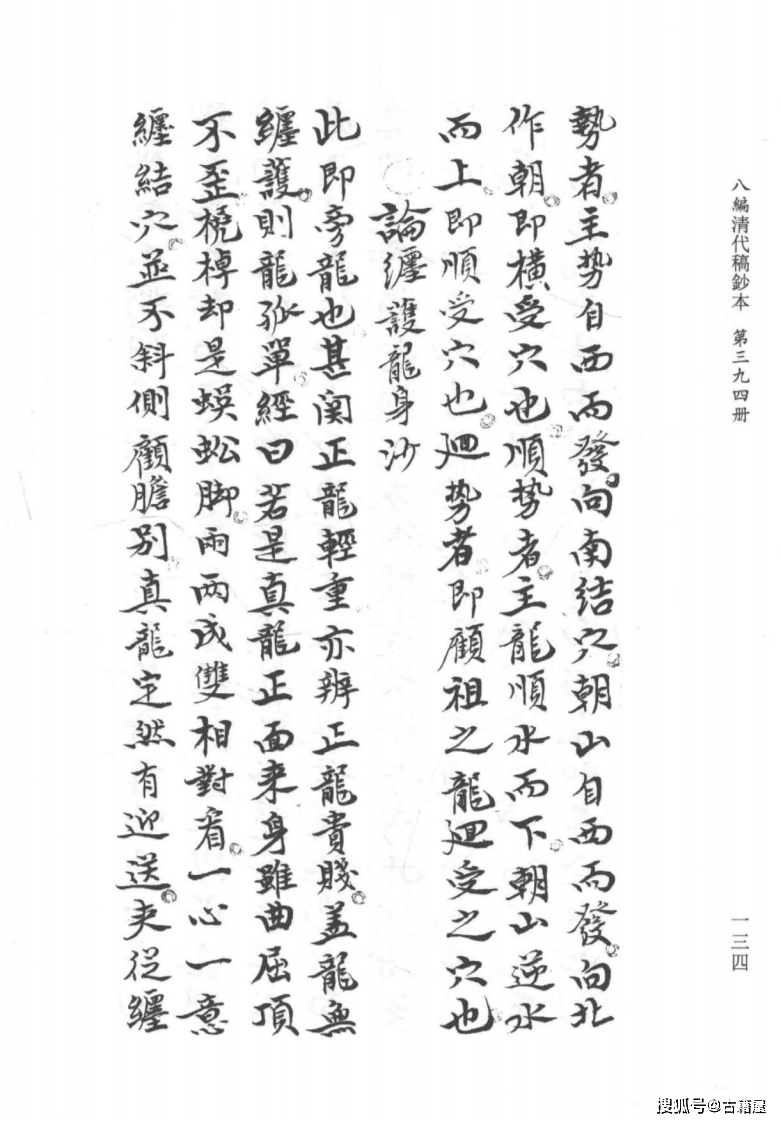 八編清代稿鈔本 第三九四册
一三四
勢者。主势自西而發。向南結穴。朝山自西而發。向北
作朝。即横受穴也。順势者。主龍順水而下。朝山逆水
而上。即順受穴也。廻势者。即顧祖之龍廻受之穴也。
論纒護龍身沙
此即旁龍也甚関正龍輕重亦辨正龍貴賤。盖龍無
纒護。則龍孤單。經曰若是真龍正面来身雖曲屈頂
不歪橈棹却是蜈蚣脚。兩兩成雙相對看。一心一意
纒結穴。並不斜側顧瞻别。真龍定然有迎送。夹從纒
搜狐号@古籍屋